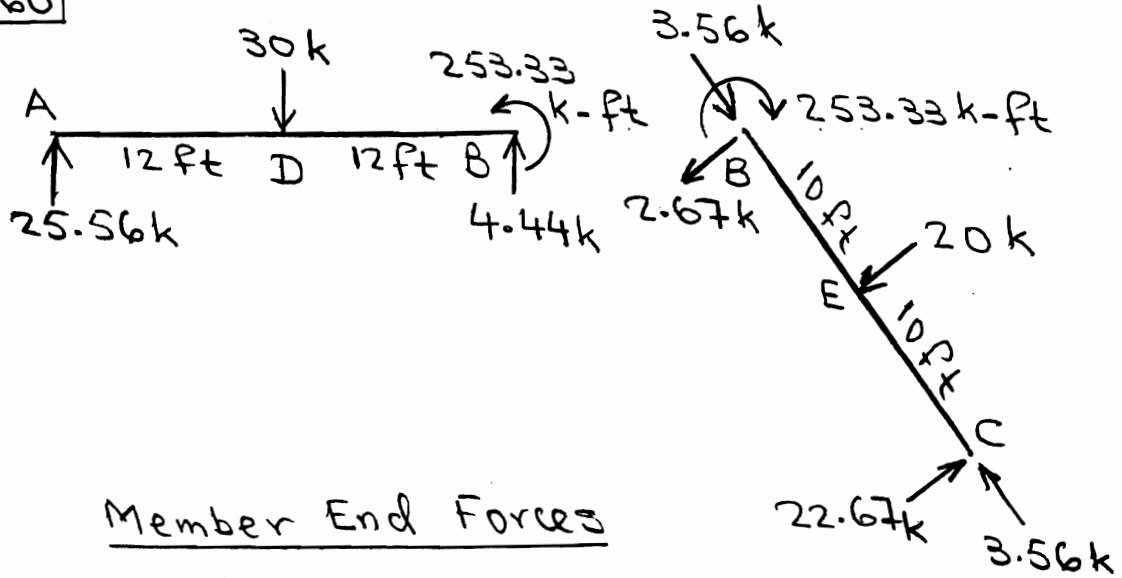 30k
253.33
k-ft
A
12ft D 12ft B
25.56k
4.44k
3.56k
253.33k-ft
B
2.67k
10ft
20k
E
10ft
C
22.67k
3.56k
Member End Forces